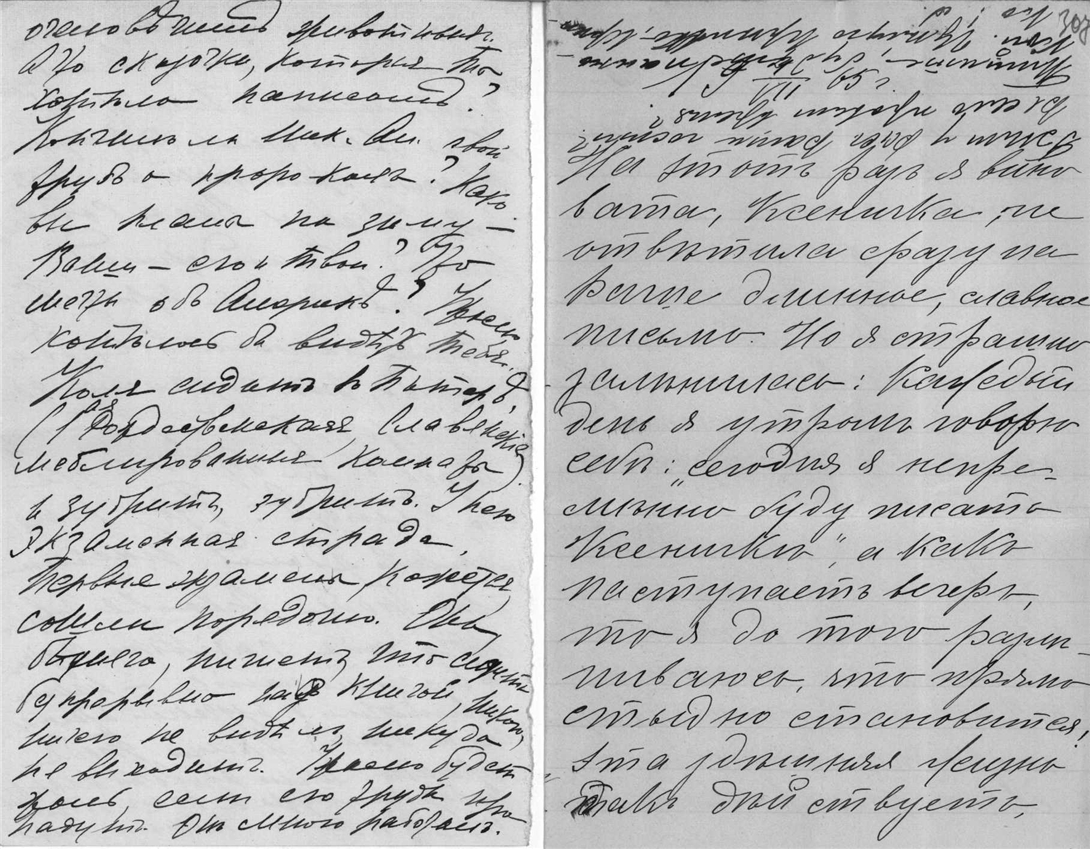 очеловѣчить животныхъ.
А что сказочки, которыя ты
хотѣла написать?
Кончилъ ли Ник. Ан. свой
трудъ о пророкахъ? Какъ
вы планы на зиму –
Ваши – его и твои? Что
мечты объ Америкѣ? Ужасно
хотѣлось бы видѣть тебя.
Коля сидитъ въ Питерѣ,
(Рождественская, Славянскія
меблированныя комнаты)
и зубритъ, зубритъ. У него
экзаменная страда.
Первые экзамены, кажется,
сошли порядочно. Онъ,
бѣдняга, пишетъ, что сидитъ
безпрерывно надъ книгой, никого,
ничего не видѣлъ, никуда
не выходитъ. Ужасно будетъ
жаль, если его труды про
падутъ. Онъ много работалъ.
308
VIII 05 г.
На этотъ разъ я вино
вата, Ксеничка, не
отвѣтила сразу на
Ваше длинное, славное
письмо. Но я страшно
залѣнилась: каждый
день я утромъ говорю
себѣ: „сегодня я непре-
мѣнно буду писать
Ксеничкѣ", а какъ
наступаетъ вечеръ,
то я до того разлѣ-
ниваюсь, что прямо
стыдно становится!
Эта здѣшняя жизнь
такъ дѣйствуетъ,